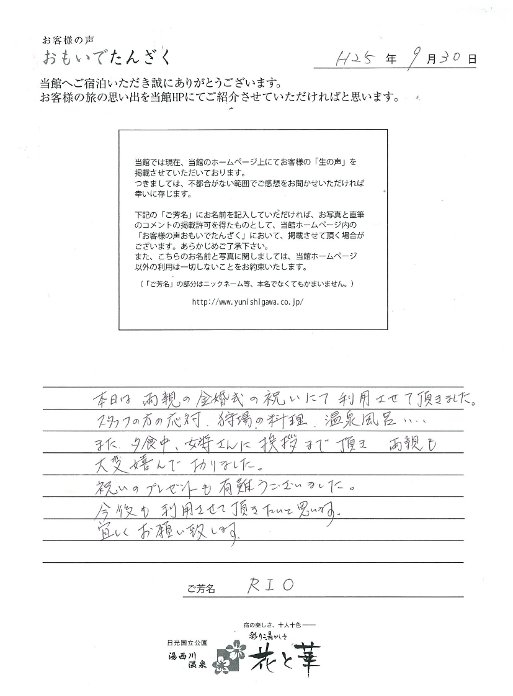 お客様の声
おもいでたんざく
H25 年 9 月 30 日
当館へご宿泊いただき誠にありがとうございます。
お客様の旅の思い出を当館HPにてご紹介させていただければと思います。
当館では現在、当館のホームページ上にてお客様の「生の声」を
掲載させていただいております。
つきましては、不都合がない範囲でご感想をお聞かせいただければ
幸いに存じます。
下記の「ご芳名」にお名前を記入していただければ、お写真と直筆
のコメントの掲載許可を得たものとして、当館ホームページ内の
「お客様の声おもいでたんざく」において、掲載させて頂く場合が
ございます。あらかじめご了承下さい。
また、こちらのお名前と写真に関しましては、当館ホームページ
以外の利用は一切しないことをお約束いたします。
（「ご芳名」の部分はニックネーム等、本名でなくてもかまいません。）
http://www.yunishigawa.co.jp/
本日は 両親の金婚式の祝いにて 利用させて頂きました。
スタッフの方の応対、狩場の料理、温泉風呂‥‥
また、夕食中、女将さんに挨拶まで頂き 両親も
大変喜んで おりました。
祝いのプレゼントも有難うございました。
今後も 利用させて頂きたいと思います。
宜しくお願い致します。
ご芳名 RIO
宿の楽しさ、十人十色
日光国立公園
湯西川
温泉
花と華